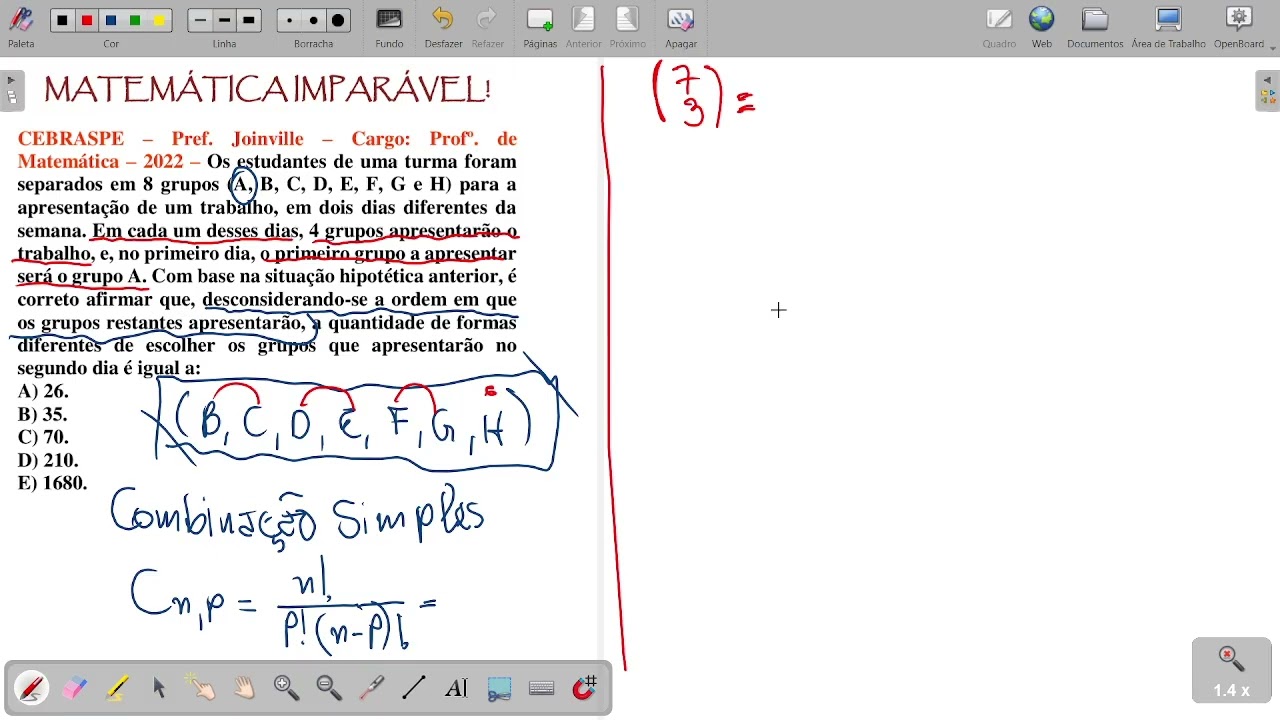 Paleta
Cor
Linha
Borracha
Fundo
Desfazer
Refazer
Páginas
Anterior
Próximo
Apagar
Quadro
Web
Documentos
Área de Trabalho
OpenBoard
MATEMÁTICA IMPARÁVEL!
CEBRASPE – Pref. Joinville – Cargo: Profº. de
Matemática – 2022 – Os estudantes de uma turma foram
separados em 8 grupos (A, B, C, D, E, F, G e H) para a
apresentação de um trabalho, em dois dias diferentes da
semana. Em cada um desses dias, 4 grupos apresentarão o
trabalho, e, no primeiro dia, o primeiro grupo a apresentar
será o grupo A. Com base na situação hipotética anterior, é
correto afirmar que, desconsiderando-se a ordem em que
os grupos restantes apresentarão, a quantidade de formas
diferentes de escolher os grupos que apresentarão no
segundo dia é igual a:
A) 26.
B) 35.
C) 70.
D) 210.
E) 1680.
(B, C, D, E, F, G, H)
Combinação Simples
Cn,p = n!
P!(n-P)! =
(7
3) =
AI
1.4 x